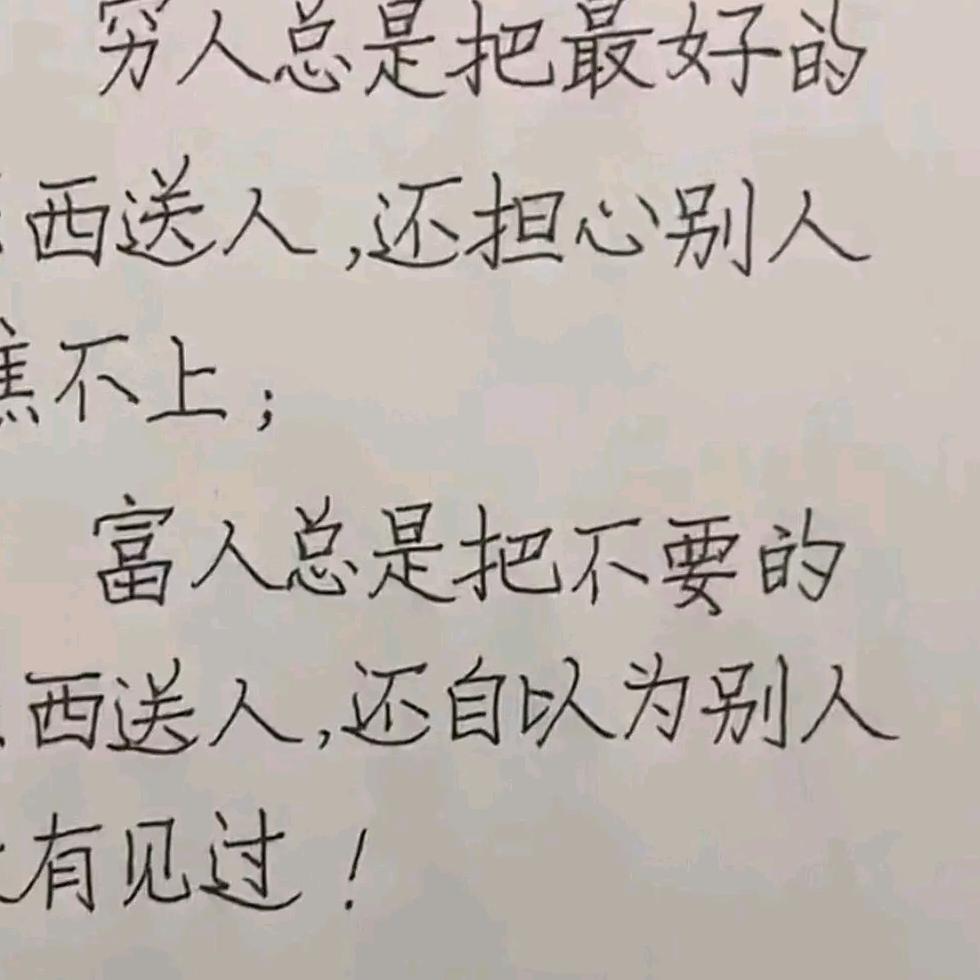 穷人总是把最好的
西送人,还担心别人
瞧不上;
富人总是把不要的
西送人,还自以为别人
有见过!